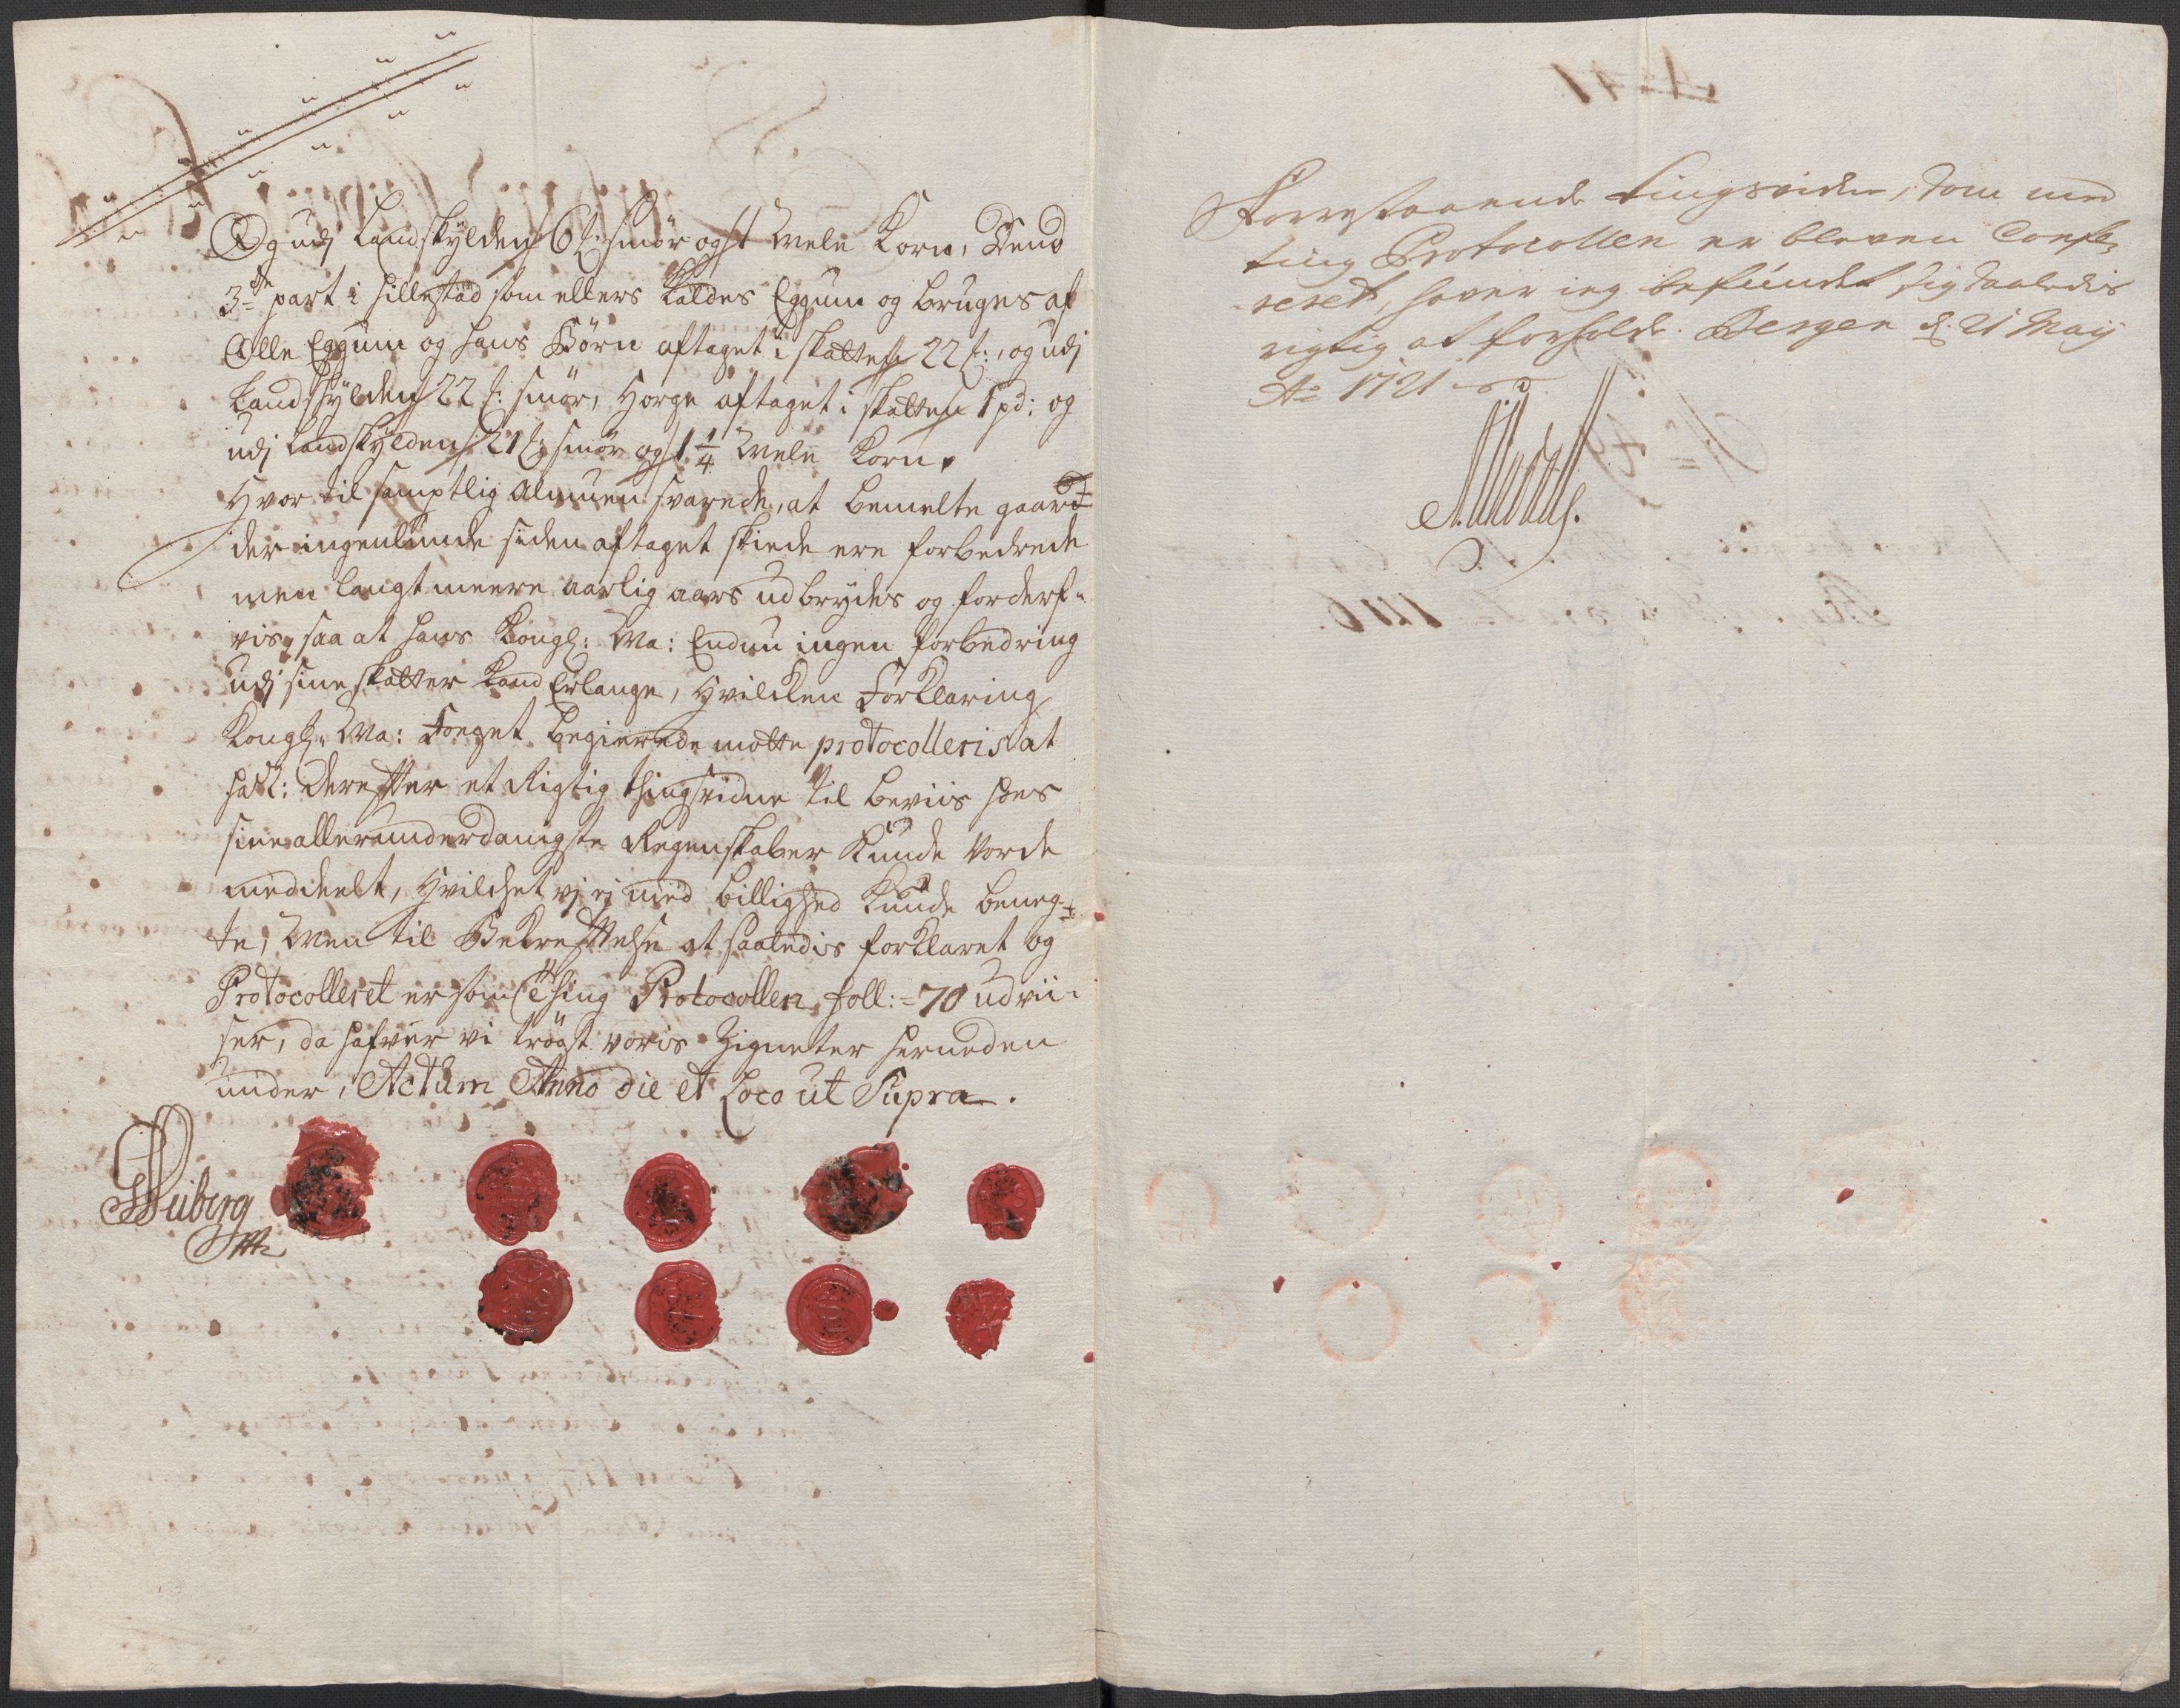 Og udj Landskylden 6 t: smör og 1 Mele Korn, Dend
3de part i Hillestad som ellers kaldes Eggum og bruges af
Olle Eggum og hans Börn aftaget i skatten 22 t:, og udj
Landskylden 22 t: smör, Horge aftaget i skatten 1 pd: og
udj Landskylden 21 t: smör og 1 1/4 Mele Korn.
Hvor til samptlig Almuen svarede, at bemelte gaar-
der ingenlunde siden aftaget skiede ere forbedrede
men langt meere aarlig aars udbrydes og forderf-
vis, saa at hans Kongl: Ma: Endnu ingen forbedring
udj sine skatter kand Erlange, Hvilcken Forklaring
Kongl: Ma: Foeget begierede motte protocolleris at
hand: derefter et Rigtig thingsvidne til beviis hos
sine allerunderdanigste Regenskaber kunde vorde
meddeelt, Hvilchet vj ej med billighed kunde beneg-
te, Men til Bekreftelse at saaledis forklaret og
Protocolleret er som thing Protocollen foll:=70 udvii-
ser, da hafver vi trögt voris Zigneter herneden
under, Actum Anno die et Loco ut Supra.
Wiberg
Forrestaaende tingsvidne, som med
ting Protocollen er bleven Confe-
reret, haver ieg befundet sig saaledis
rigtig at forholde. Bergen d. 21 Maij
Ao 1721